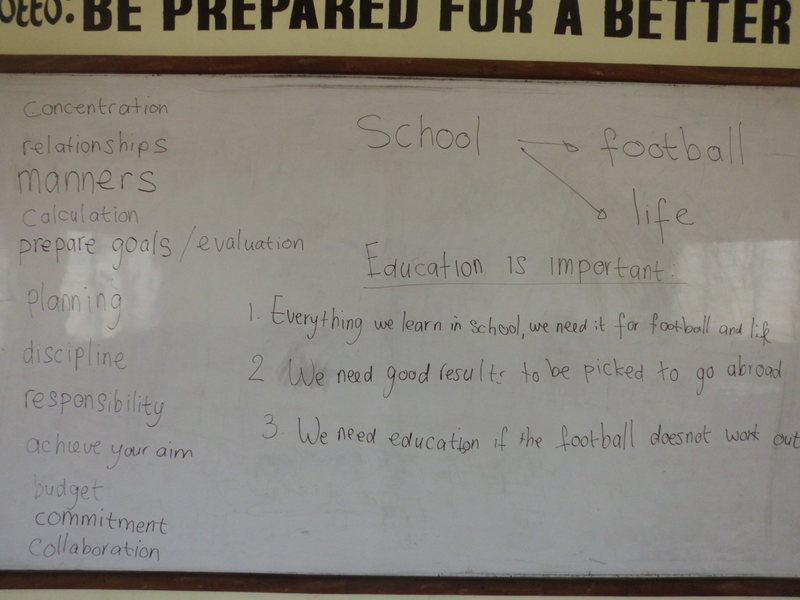 otto: BE PREPARED FOR A BETTER
concentration
relationships
manners
calculation
prepare goals / evaluation
planning
discipline
responsibility
achieve your aim
budget
commitment
collaboration
School → football
→ life
Education is important:
1. Everything we learn in school, we need it for football and life
2 We need good results to be picked to go abroad
3. We need education if the football doesnot work out